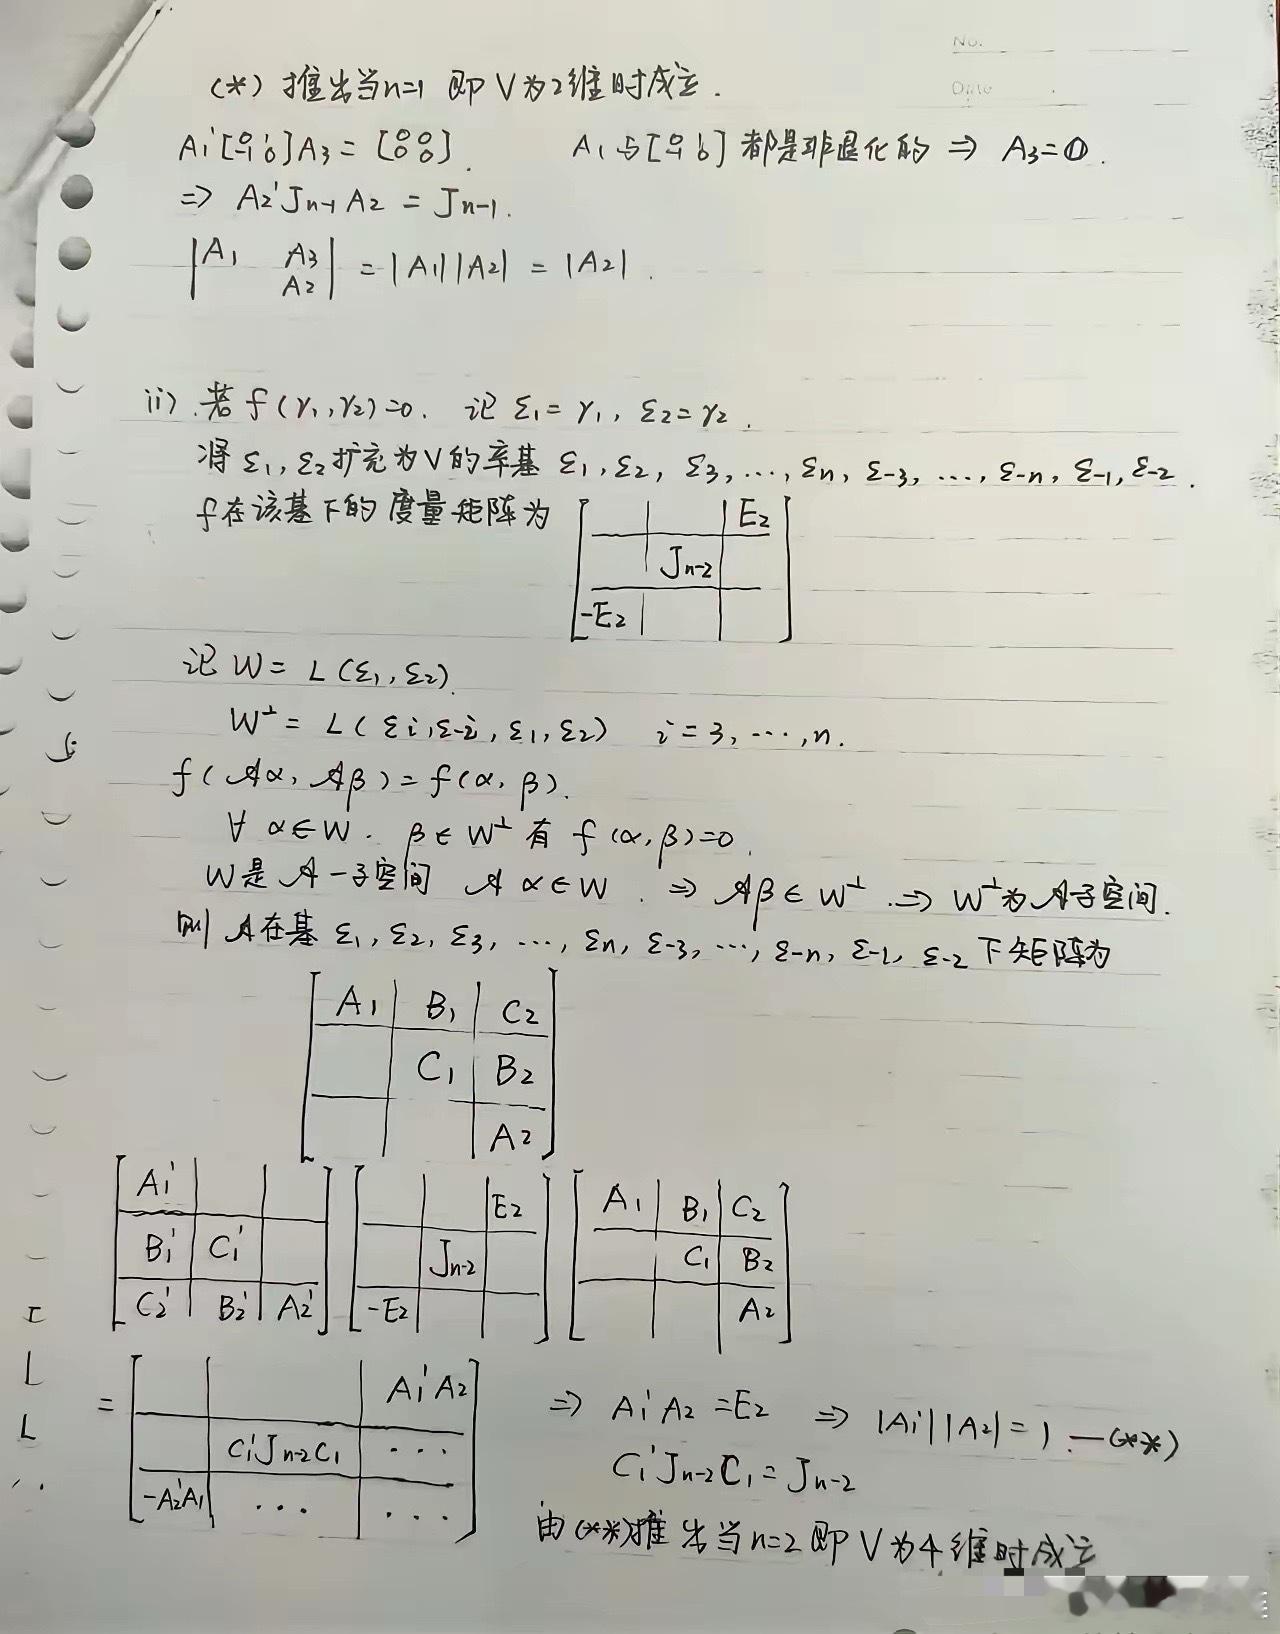 No.
Date
(*) 推出当n=1 即 V为2维时成立.
A₁'[0 1 -1 0]A₃ = [0 0 0 0]. A₁与[0 1 -1 0]都是非退化的 ⇒ A₃=0.
⇒ A₂'Jn-1A₂ = Jn-1.
|A₁ A₃
A₂| = |A₁||A₂| = |A₂|.
ii) 若 f(γ₁,γ₂)=0. 记 ε₁=γ₁, ε₂=γ₂.
将 ε₁,ε₂扩充为V的辛基 ε₁,ε₂, ε₃, …, εn, ε-3, …, ε-n, ε-1, ε-2.
f在该基下的度量矩阵为
E₂
Jn-2
-E₂
记 W = L(ε₁,ε₂).
W⊥ = L(εi,ε-i, ε₁,ε₂) i=3,…,n.
f(𝒜α, 𝒜β)=f(α,β).
∀ α∈W. β∈W⊥ 有 f(α,β)=0.
W是𝒜-子空间 𝒜α∈W. ⇒ 𝒜β∈W⊥. ⇒ W⊥为𝒜子空间.
则 𝒜在基 ε₁,ε₂,ε₃, …, εn, ε-3, …, ε-n, ε-1, ε-2 下矩阵为
A₁ B₁ C₂
C₁ B₂
A₂
A₁' E₂ A₁ B₁ C₂
B₁' C₁' Jn-2 C₁ B₂
C₂' B₂' A₂' -E₂ A₂
= A₁'A₂ ⇒ A₁'A₂ = E₂ ⇒ |A₁'||A₂| = 1. —(**)
C₁'Jn-2C₁ ⋯ C₁'Jn-2C₁ = Jn-2
-A₂'A₁ ⋯ ⋯
由(**)推出当n=2 即 V为4维时成立